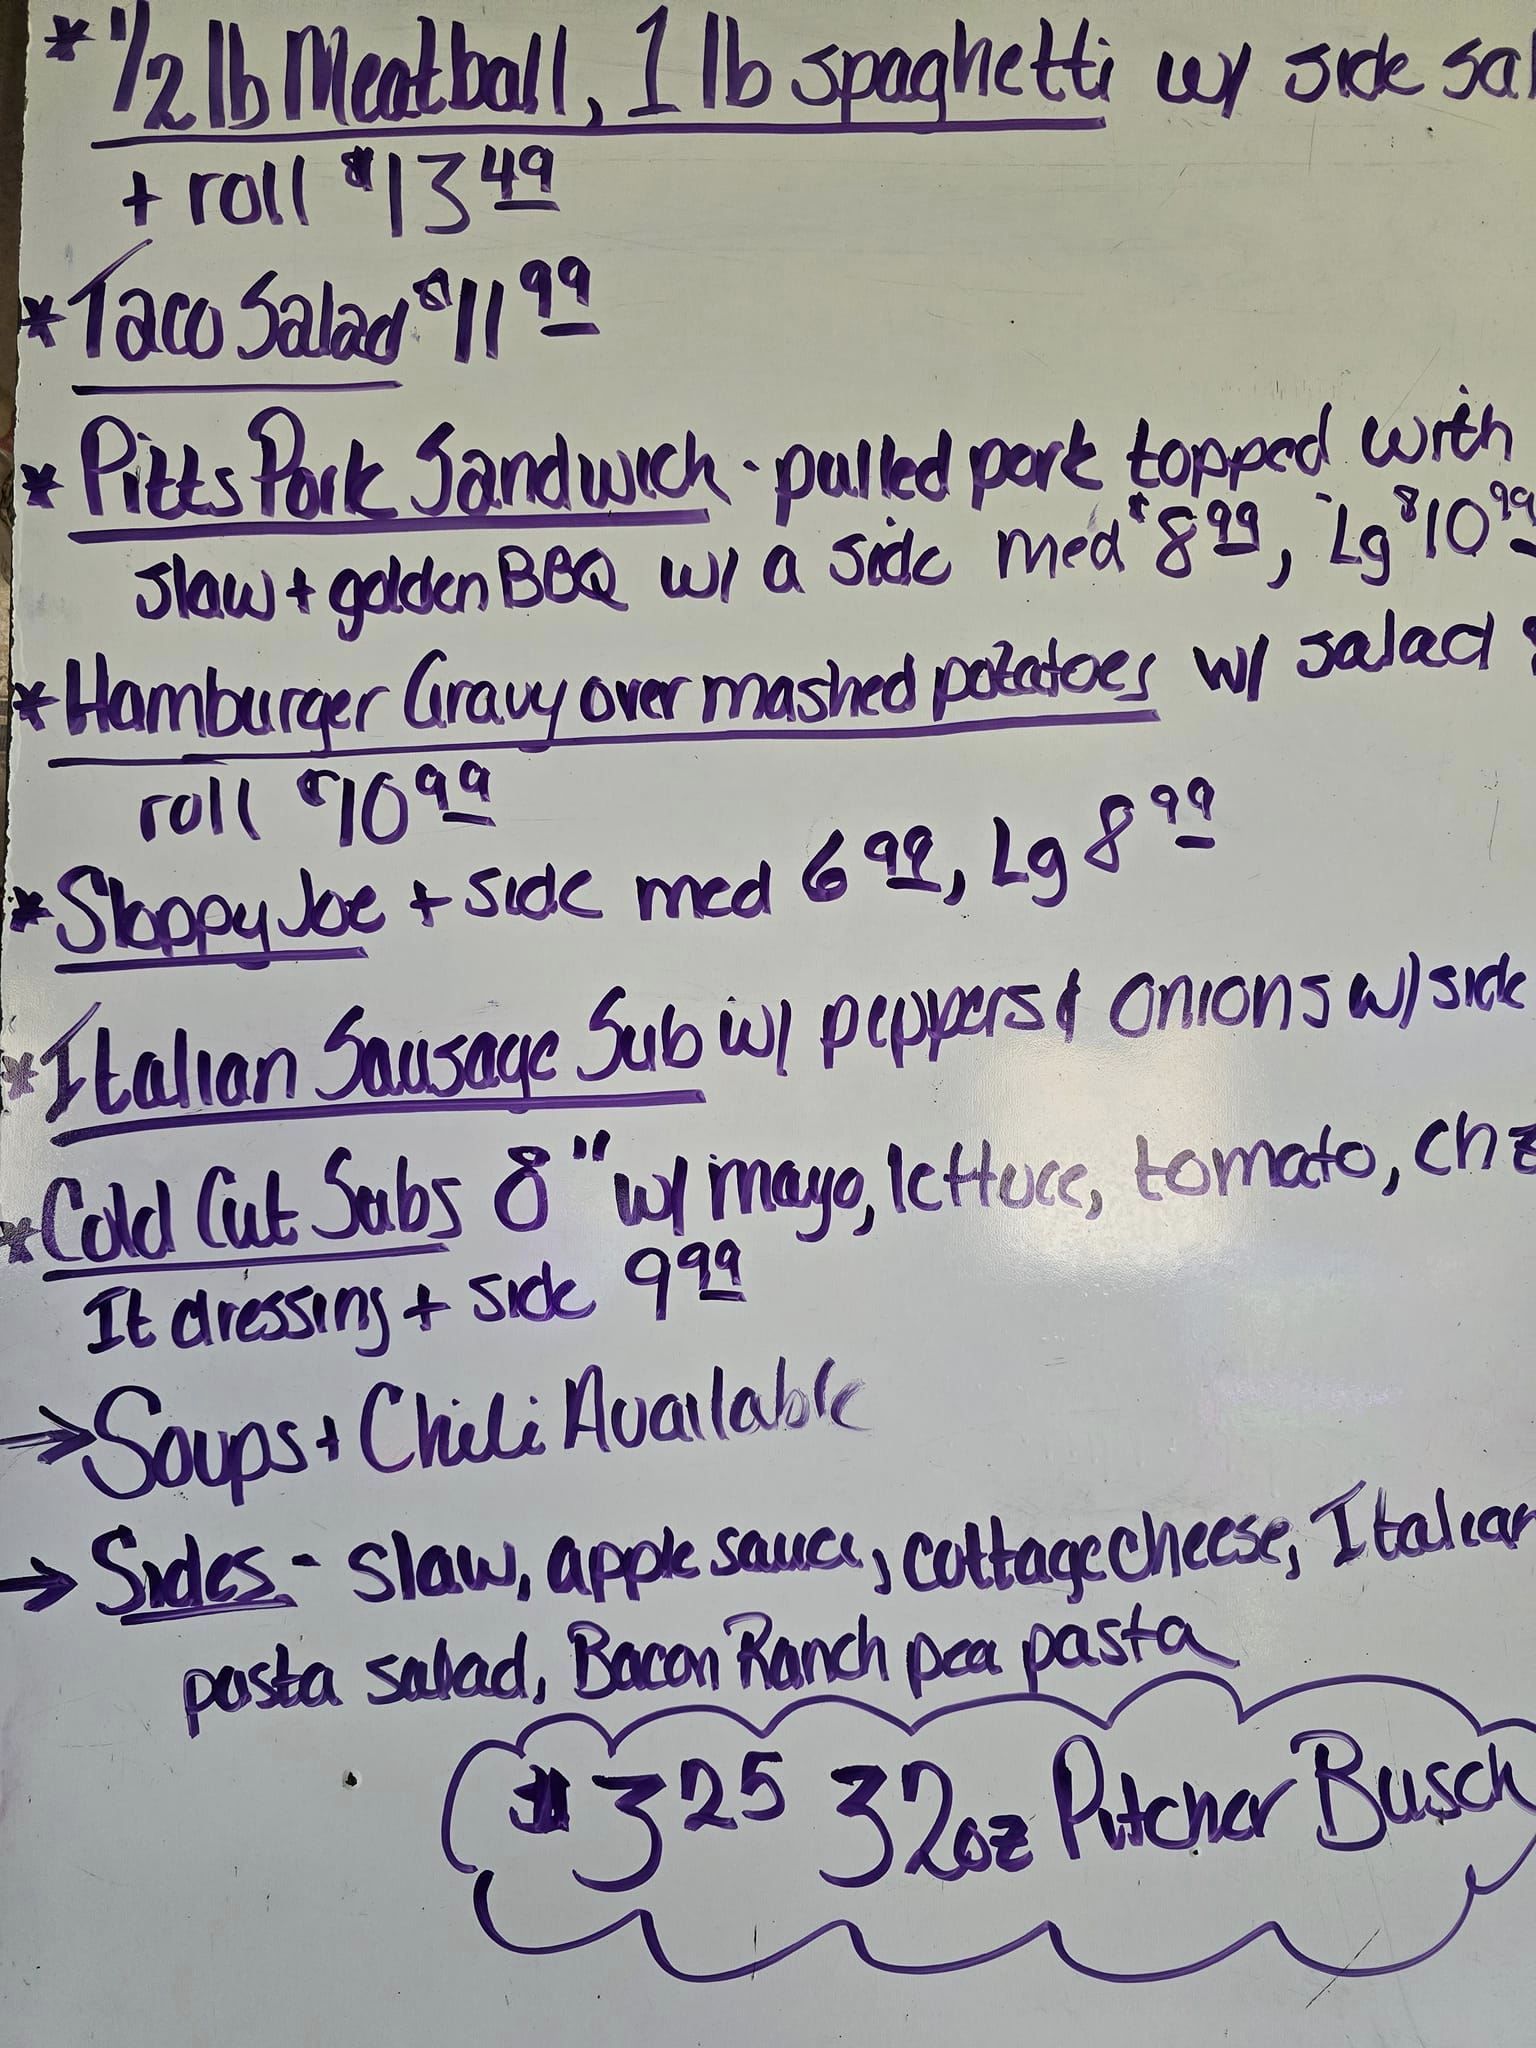 * 1/2 lb Meatball, 1 lb spaghetti w/ side sal
+ roll $13 49
* Taco Salad $11 99
* Pitts Pork Sandwich - pulled pork topped with
slaw + golden BBQ w/ a side med $8 99, Lg $10 99
* Hamburger Gravy over mashed potatoes w/ salad
roll $10 99
* Sloppy Joe + side med 6 99, Lg 8 99
* Italian Sausage Sub w/ peppers & onions w/ side
* Cold Cut Subs 8" w/ mayo, lettuce, tomato, chz
It dressing + side 9 99
→ Soups + Chili Available
→ Sides - slaw, apple sauce, cottage cheese, Italian
pasta salad, Bacon Ranch pea pasta
$3 25 32oz Pitcher Busch